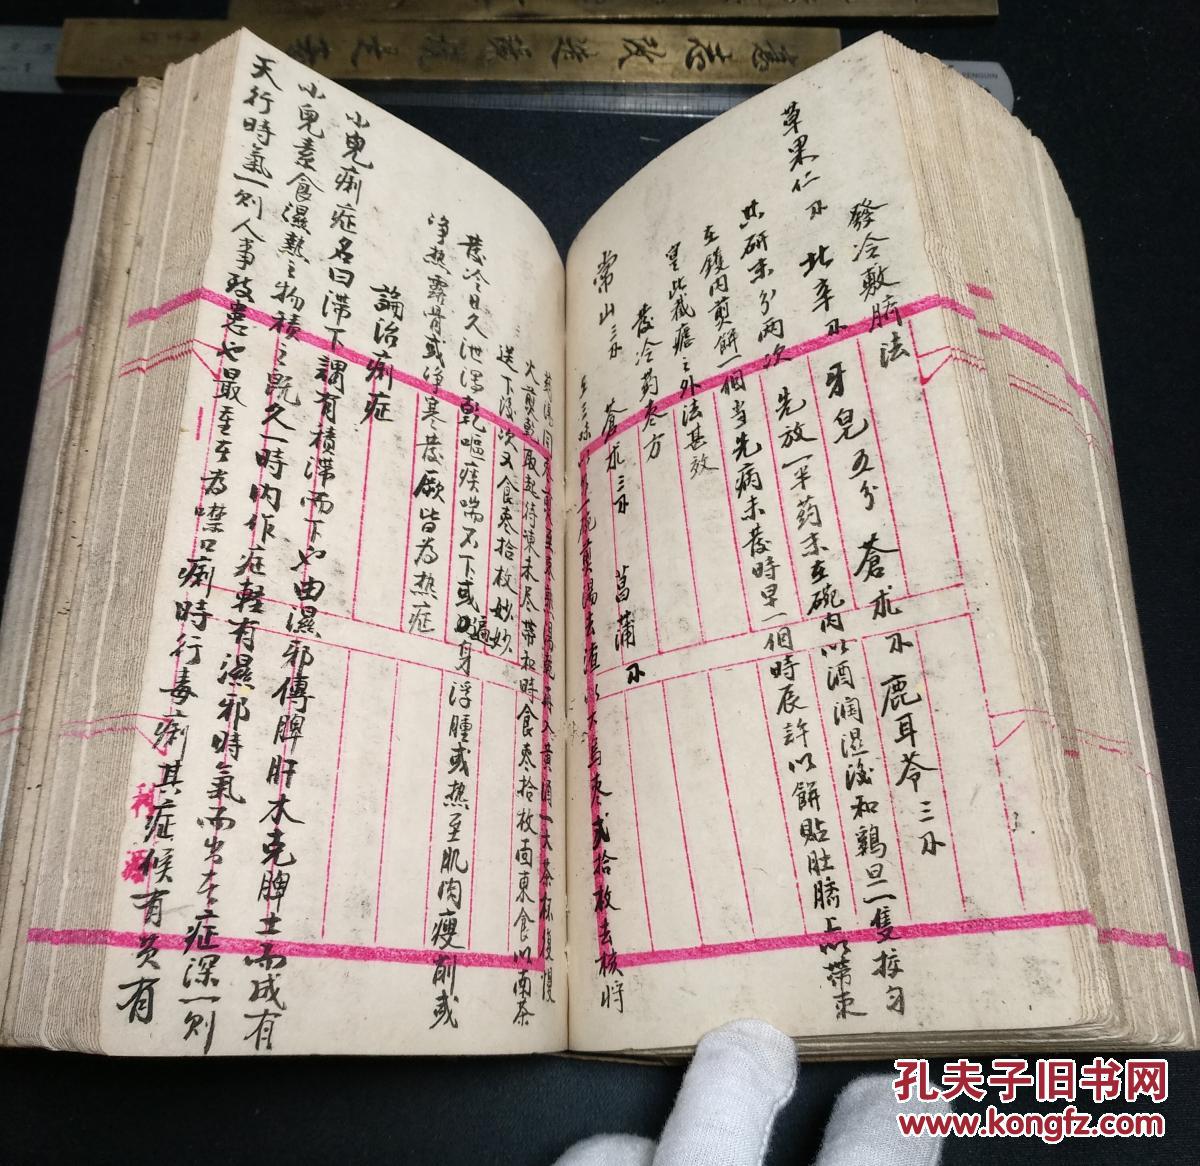 發冷敷臍法
草果仁 北辛 牙皂五分 蒼朮 鹿耳苓三
共研末分兩次 先放一半药末在碗内以酒潤濕後和鷄旦一隻撈匀
在鑊内煎餅一個当先病未發時早一個時辰許以餅貼肚臍上以帶束
此截瘧之外法甚效
發冷药枣方
常山三 蒼朮三 菖蒲
碗煎湯去渣以大烏枣弍拾枚去核将
再入黄酒一大茶杯復慢
火煎乾取起待凍未尽帶和時食枣拾枚面東食以南茶
送下後次又食枣拾枚妙妙
發冷日久泄瀉乾嘔痰喘不下或遍身浮腫或热至肌肉瘦削或
净热露骨或净寒發厥皆為热症
論治痢症
小兒痢症名曰滞下謂有積滞而下也由濕邪傳脾肝木克脾土而成有
小兒素食濕熱之物積之既久一時内作症軽有濕邪時氣而出本症深一则
天行時氣一则人事致患也最重在為噤口痢時行毒痢其症候有赀有
孔夫子旧书网
www.kongfz.com